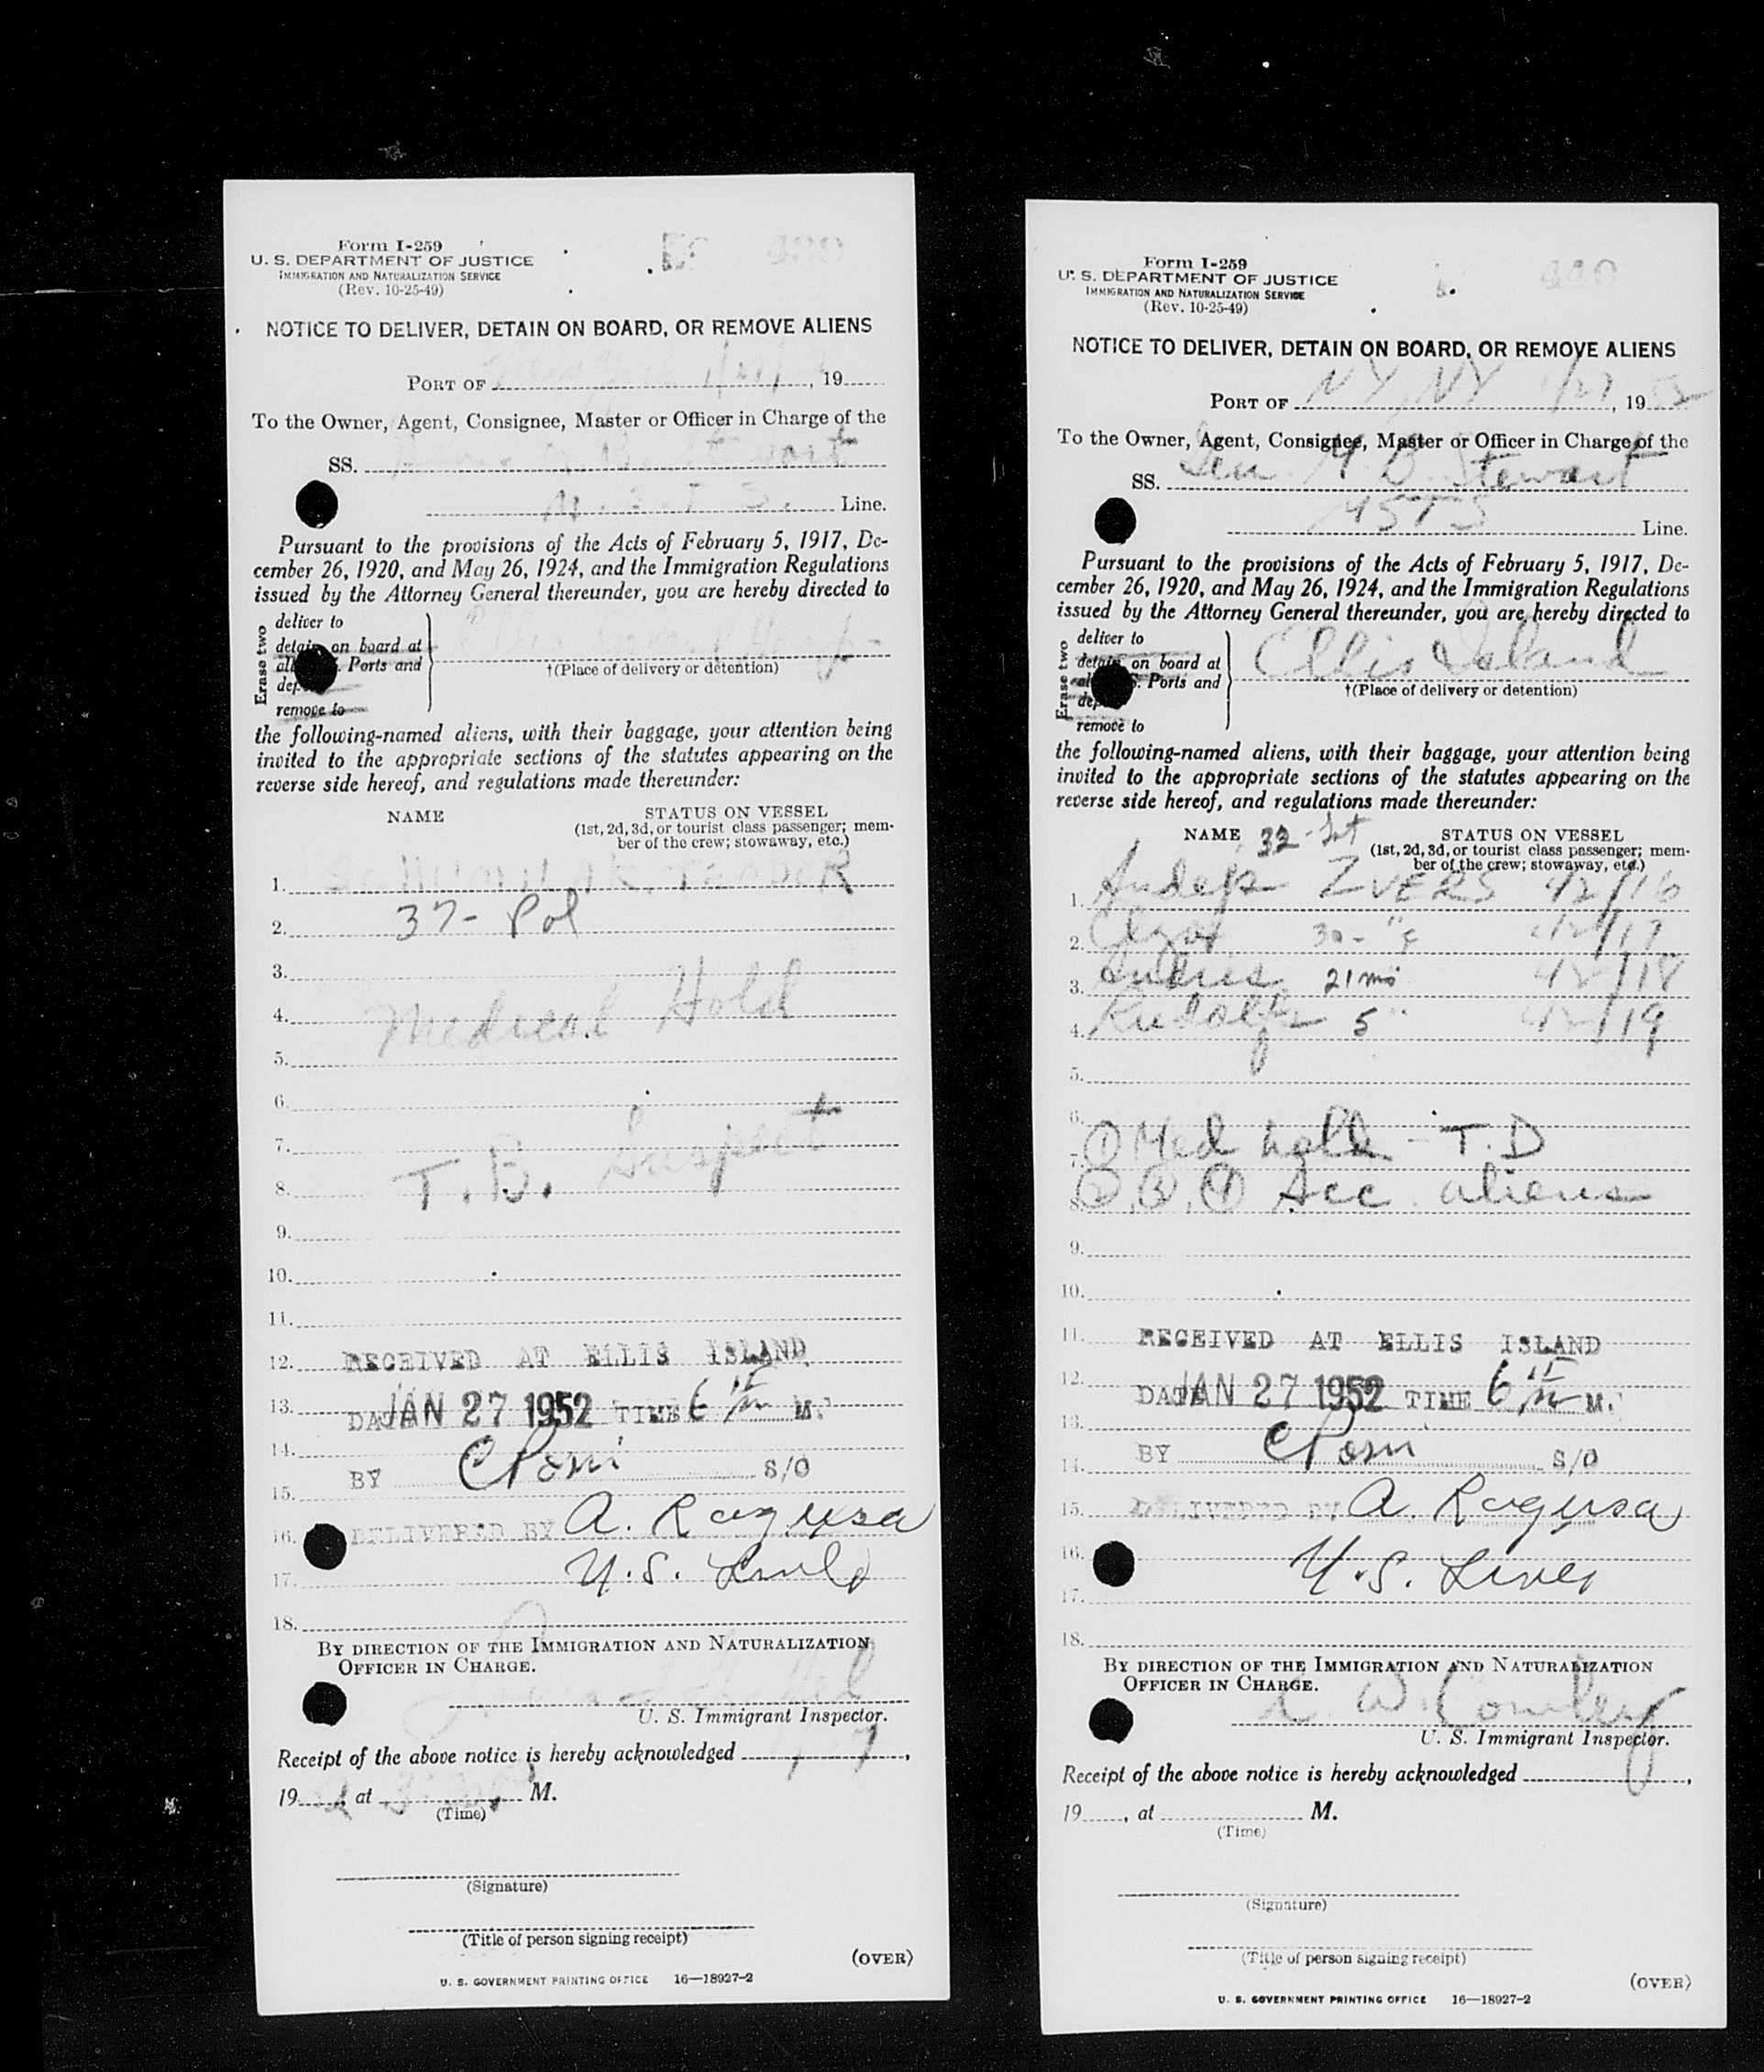 Form I-259
U. S. DEPARTMENT OF JUSTICE
IMMIGRATION AND NATURALIZATION SERVICE
(Rev. 10-25-49)
NOTICE TO DELIVER, DETAIN ON BOARD, OR REMOVE ALIENS
PORT OF , 19
To the Owner, Agent, Consignee, Master or Officer in Charge of the
SS.
M. S. T. S. Line.
Pursuant to the provisions of the Acts of February 5, 1917, De-
cember 26, 1920, and May 26, 1924, and the Immigration Regulations
issued by the Attorney General thereunder, you are hereby directed to
Erase two
deliver to
detain on board at
Ports and
remove to
†(Place of delivery or detention)
the following-named aliens, with their baggage, your attention being
invited to the appropriate sections of the statutes appearing on the
reverse side hereof, and regulations made thereunder:
NAME STATUS ON VESSEL
(1st, 2d, 3d, or tourist class passenger; mem-
ber of the crew; stowaway, etc.)
1.
2. 37- Pol
3.
4. Medical Hold
5.
6.
7.
8. T. B. Suspect
9.
10.
11.
12. RECEIVED AT ELLIS ISLAND
13. DATE JAN 27 1952 TIME 6 15 M.
14.
BY S/O
15.
16. DELIVERED BY A. Ragusa
17. U.S. Lines
18.
BY DIRECTION OF THE IMMIGRATION AND NATURALIZATION
OFFICER IN CHARGE.
U. S. Immigrant Inspector.
Receipt of the above notice is hereby acknowledged ,
19 , at M.
(Time)
(Signature)
(Title of person signing receipt)
(OVER)
U. S. GOVERNMENT PRINTING OFFICE 16—18927-2
Form I-259
U. S. DEPARTMENT OF JUSTICE
IMMIGRATION AND NATURALIZATION SERVICE
(Rev. 10-25-49)
440
NOTICE TO DELIVER, DETAIN ON BOARD, OR REMOVE ALIENS
PORT OF NY, NY 1/27, 1952
To the Owner, Agent, Consignee, Master or Officer in Charge of the
SS. Gen M B Stewart
MSTS Line.
Pursuant to the provisions of the Acts of February 5, 1917, De-
cember 26, 1920, and May 26, 1924, and the Immigration Regulations
issued by the Attorney General thereunder, you are hereby directed to
Erase two
deliver to
detain on board at
Ports and
remove to
Ellis Island
†(Place of delivery or detention)
the following-named aliens, with their baggage, your attention being
invited to the appropriate sections of the statutes appearing on the
reverse side hereof, and regulations made thereunder:
NAME 32 - Lat STATUS ON VESSEL
(1st, 2d, 3d, or tourist class passenger; mem-
ber of the crew; stowaway, etc.)
1. ZVERS 42/16
2. 30 - " 42/17
3. Andris 21 mo 42/18
4. Rudolfs 5 " 42/19
5.
6.
7. ① Med hold - T. B
8. ②, ③, ④ Acc aliens
9.
10.
11. RECEIVED AT ELLIS ISLAND
12. DATE JAN 27 1952 TIME 6 15 M.
13.
BY S/O
14.
15. DELIVERED BY A. Ragusa
16. U.S. Lines
17.
18.
BY DIRECTION OF THE IMMIGRATION AND NATURALIZATION
OFFICER IN CHARGE.
W. Conley
U. S. Immigrant Inspector.
Receipt of the above notice is hereby acknowledged ,
19 , at M.
(Time)
(Signature)
(Title of person signing receipt)
(OVER)
U. S. GOVERNMENT PRINTING OFFICE 16—18927-2